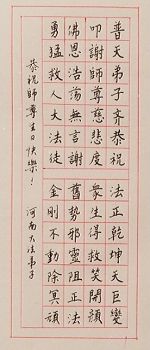 普天弟子齊恭祝 法正乾坤天巨變
叩謝師尊慈悲度 衆生得救笑開顏
佛恩浩蕩無言謝 舊勢邪靈阻正法
勇猛救人大法徒 金剛不動除冥頑
恭祝師尊生日快樂！
河南大法弟子